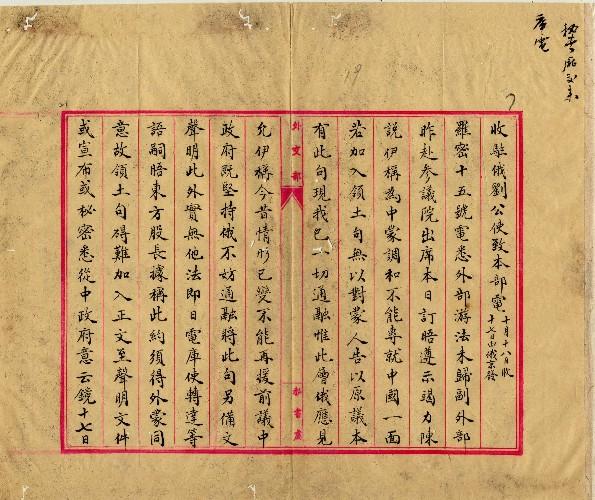 收駐俄劉公使致本部電 十月十八日收 十七日由俄京發
羅密十五號電悉外部游法未歸副外部
昨赴參議院出席本日訂晤遵示竭力陳
說伊稱為中蒙調和不能專就中國一面
若加入領土句無以對蒙人告以原議本
有此句現我已一切通融惟此層俄應見
允伊稱今昔情形已變不能再援前議中
政府既堅持俄不妨通融將此句另備文
聲明此外實無他法即日電庫使轉達等
語嗣晤東方股長據稱此約須得外蒙同
意故領土句碍難加入正文至聲明文件
或宣布或秘密悉從中政府意云鏡十七日
外交部
秘書處
19